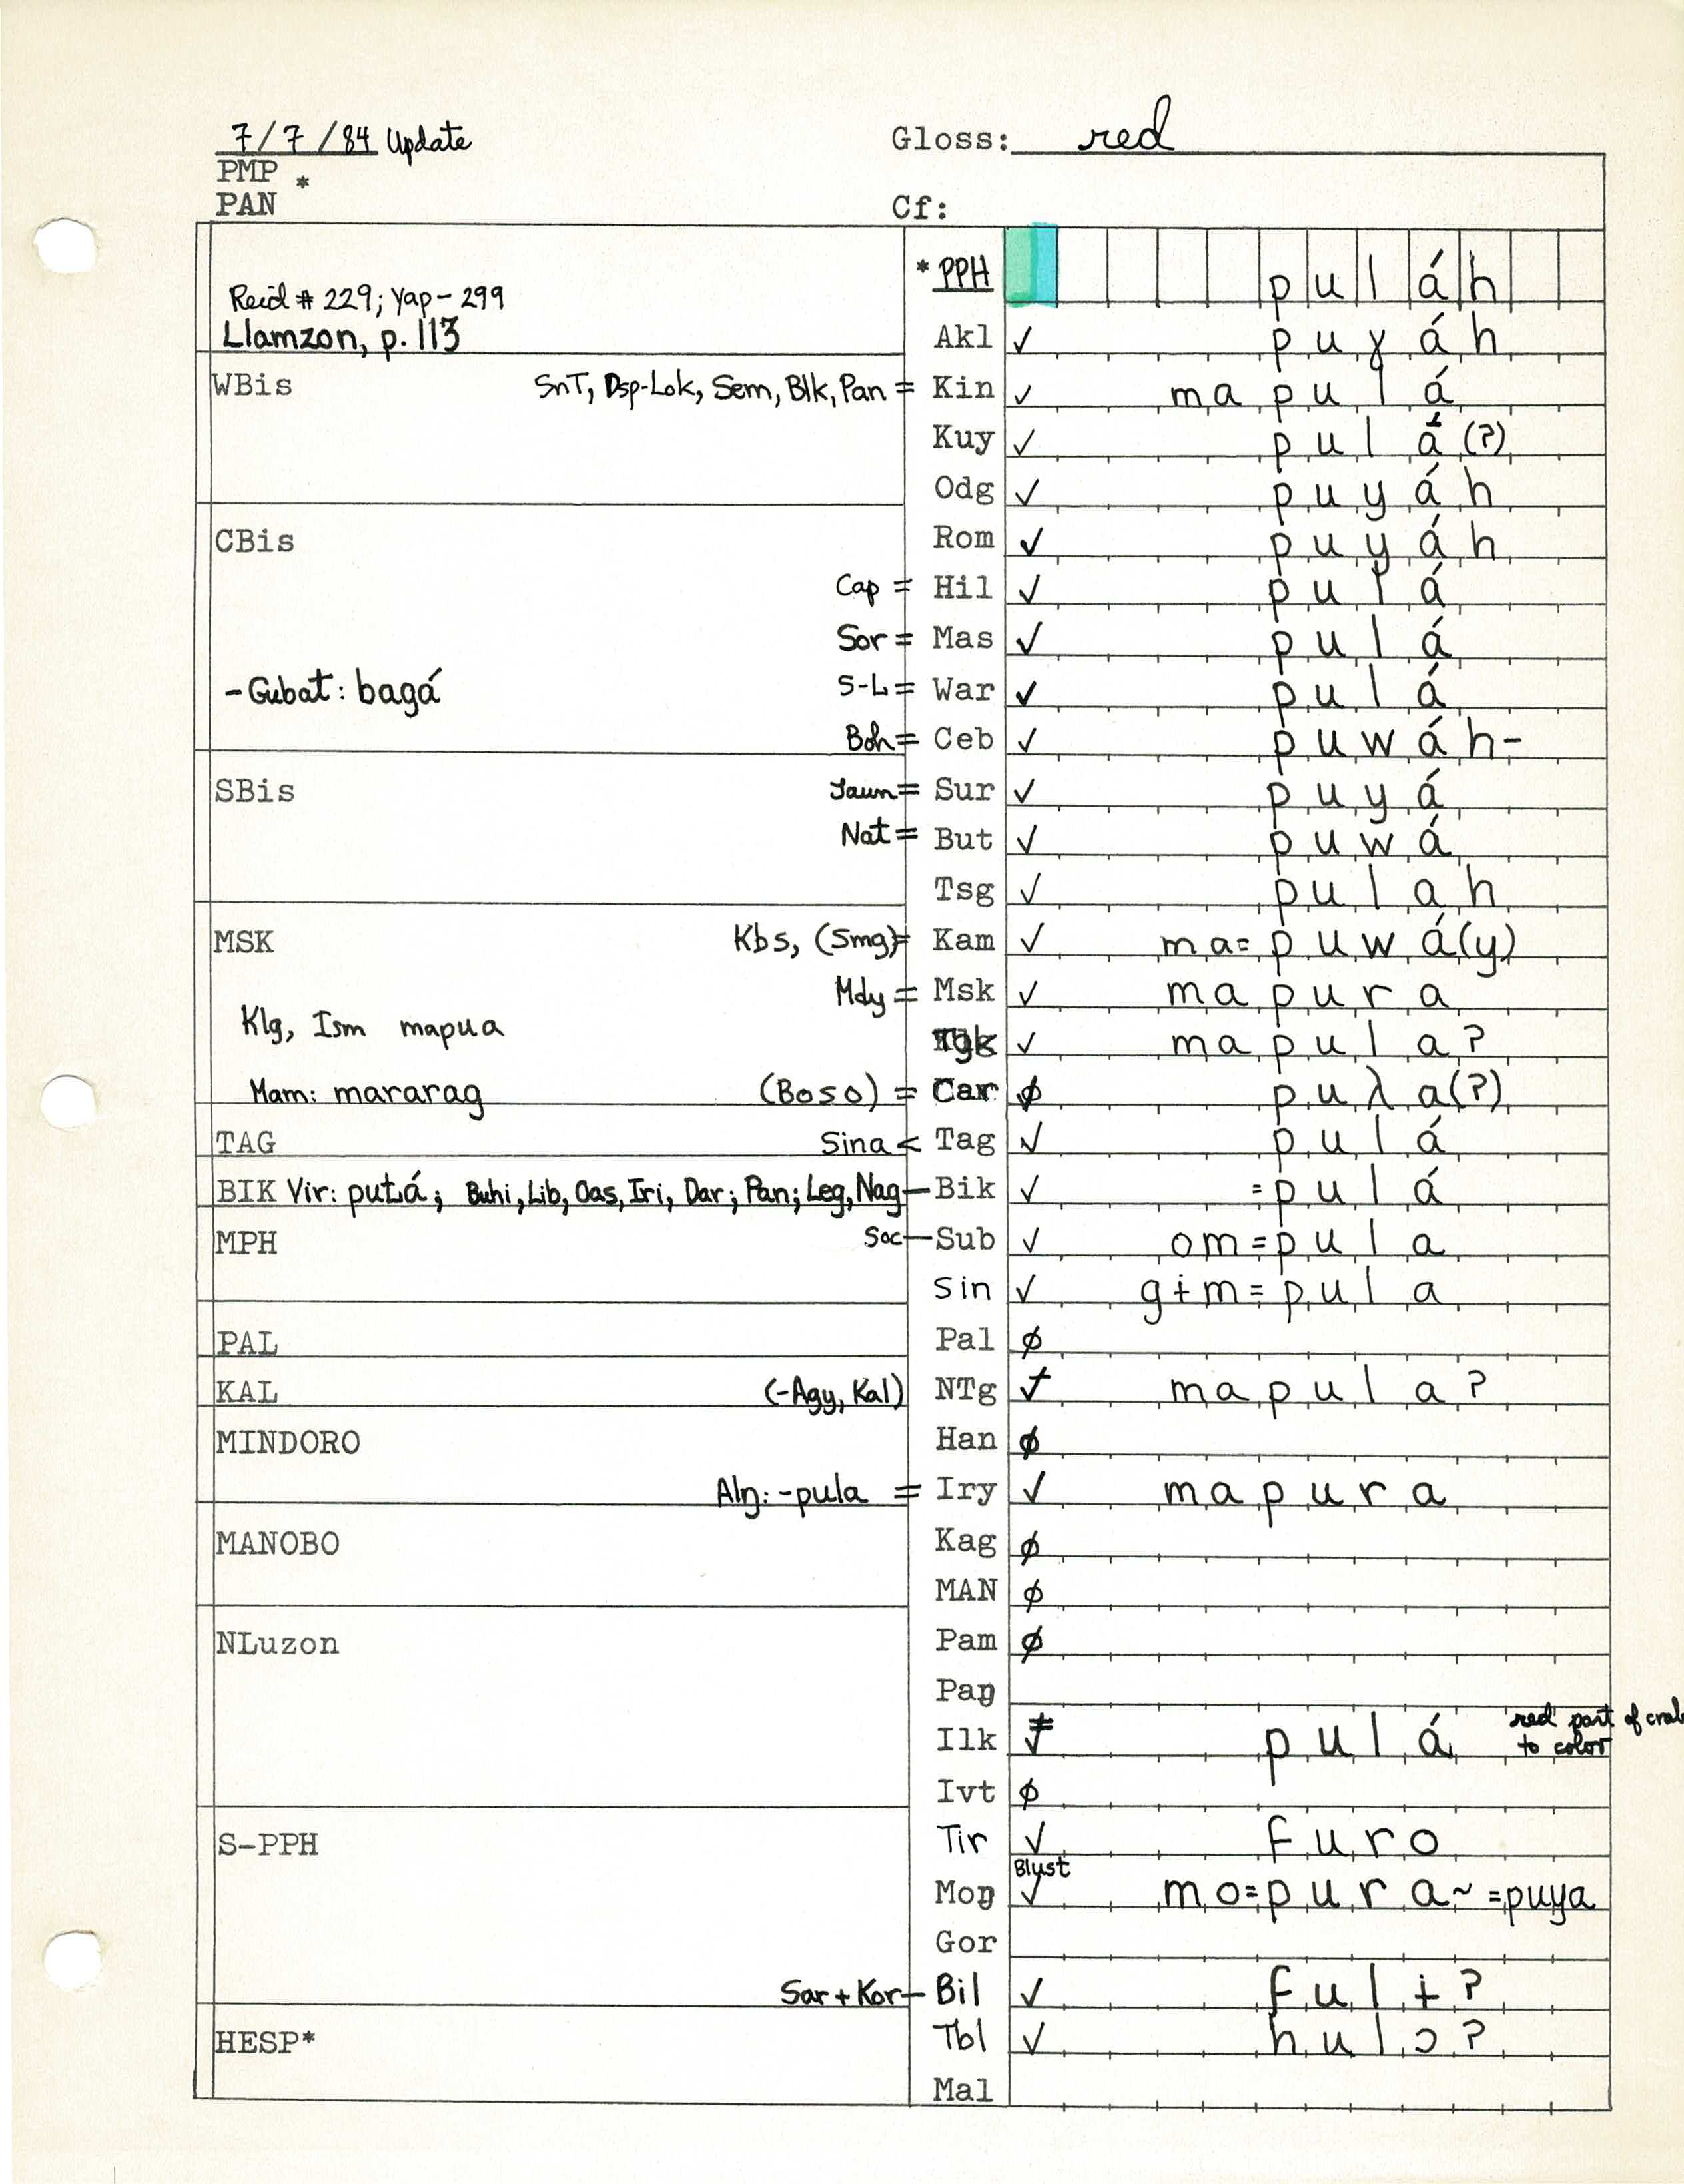 7/7/84 Update Gloss: red
PMP *
PAN Cf:
*PPH puláh
Reid # 229; Yap - 299
Llamzon, p. 113
Akl ✓ puɣáh
WBis SnT, Dsp-Lok, Sem, Blk, Pan = Kin ✓ mapulá
Kuy ✓ pulɨ́ (?)
Odg ✓ puyáh
CBis Rom ✓ puyáh
Cap = Hil ✓ pulá
Sor = Mas ✓ pulá
- Gubat: bagá S-L = War ✓ pulá
Boh = Ceb ✓ puwáh-
SBis Jaun = Sur ✓ puyá
Nat = But ✓ puwá
Tsg ✓ pulah
MSK Kbs, (Smg) = Kam ✓ ma=puwá(y)
Mdy = Msk ✓ mapura
Klg, Ism mapua
✓ mapula?
Mam: mararag (Boso) = Car ∅ puλa(?)
TAG Sina < Tag ✓ pulá
BIK Vir: putá; Buhi, Lib, Oas, Iri, Dar; Pan; Leg, Nag — Bik ✓ =pulá
MPH Soc — Sub ✓ om=pula
Sin ✓ gɨm=pula
PAL Pal ∅
KAL (-Agy, Kal) NTg ✓ mapula?
MINDORO Han ∅
Alŋ: -pula = Iry ✓ mapura
MANOBO Kag ∅
MAN ∅
NLuzon Pam ∅
Paŋ
Ilk ≠ pulá red part of crab to color
Ivt ∅
S-PPH Tir ✓ furo
Moŋ Blust ✓ mo=pura ~ =puya
Gor
Sar + Kor — Bil ✓ fulɨ?
HESP* Tbl ✓ hulɔ?
Mal